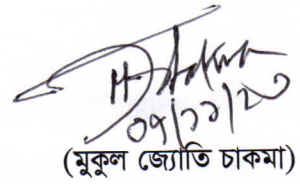 ০৭/১১/২৩
(মুকুল জ্যোতি চাকমা)